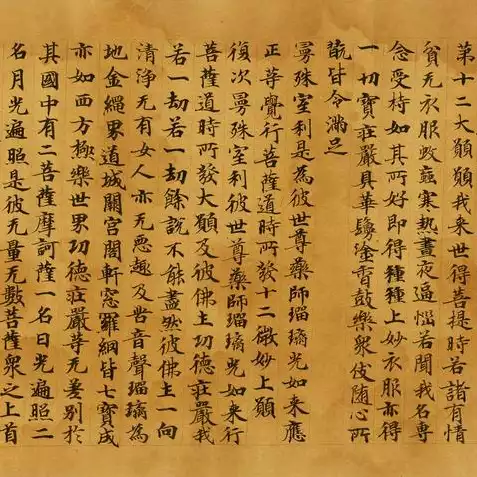 第十二大願願我来世得菩提時若諸有情
貧无衣服蚊蝱寒熱晝夜逼惱若聞我名專
念受持如其所好即得種種上妙衣服亦得
一切寶莊嚴具華鬘塗香鼓樂衆伎随心所
翫皆令滿足
曼殊室利是為彼世尊藥師瑠璃光如来應
正等覺行菩薩道時所發十二微妙上願
復次曼殊室利彼世尊藥師瑠璃光如来行
菩薩道時所發大願及彼佛土功德莊嚴我
若一劫若一劫餘説不能盡然彼佛土一向
清淨无有女人亦无惡趣及苦音聲瑠璃為
地金繩界道城闕宮閣軒窓羅網皆七寶成
亦如西方極樂世界功德莊嚴等无差別於
其國中有二菩薩摩訶薩一名日光遍照二
名月光遍照是彼无量无數菩薩衆之上首